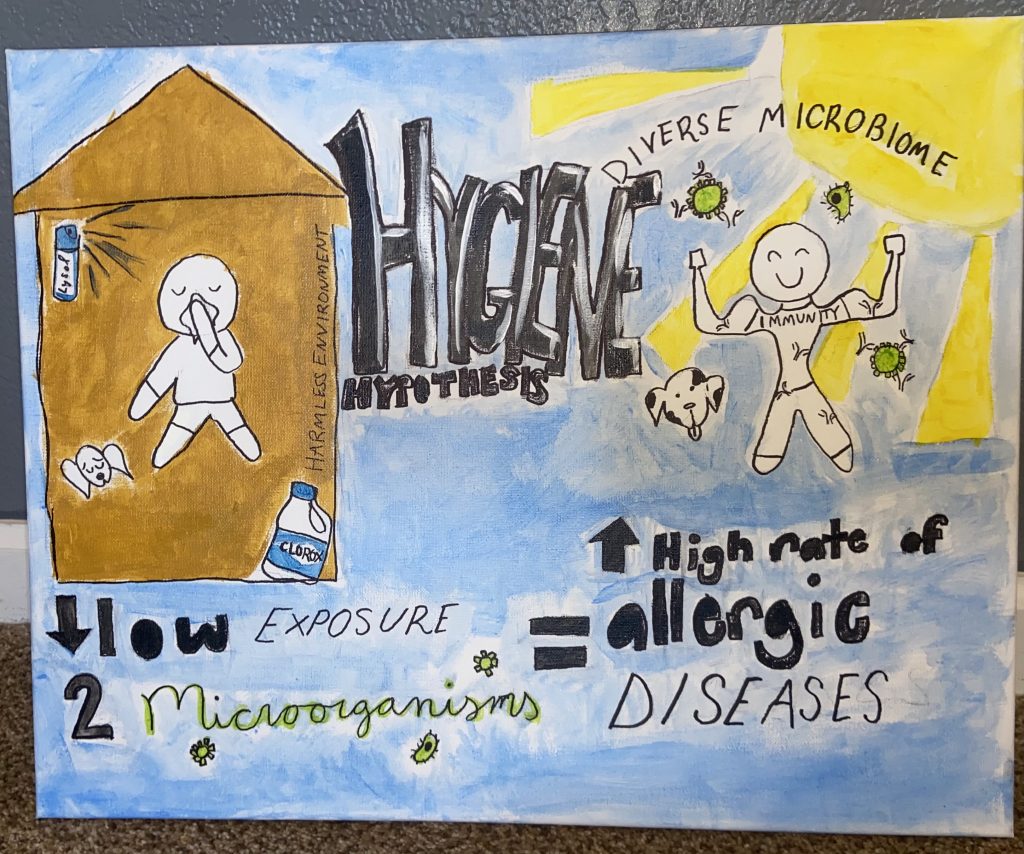 HYGIENE
HYPOTHESIS
DIVERSE MICROBIOME
Lysol
HARMLESS ENVIRONMENT
IMMUNITY
CLOROX
low EXPOSURE
2 Microorganisms
=
High rate of
allergic
DISEASES